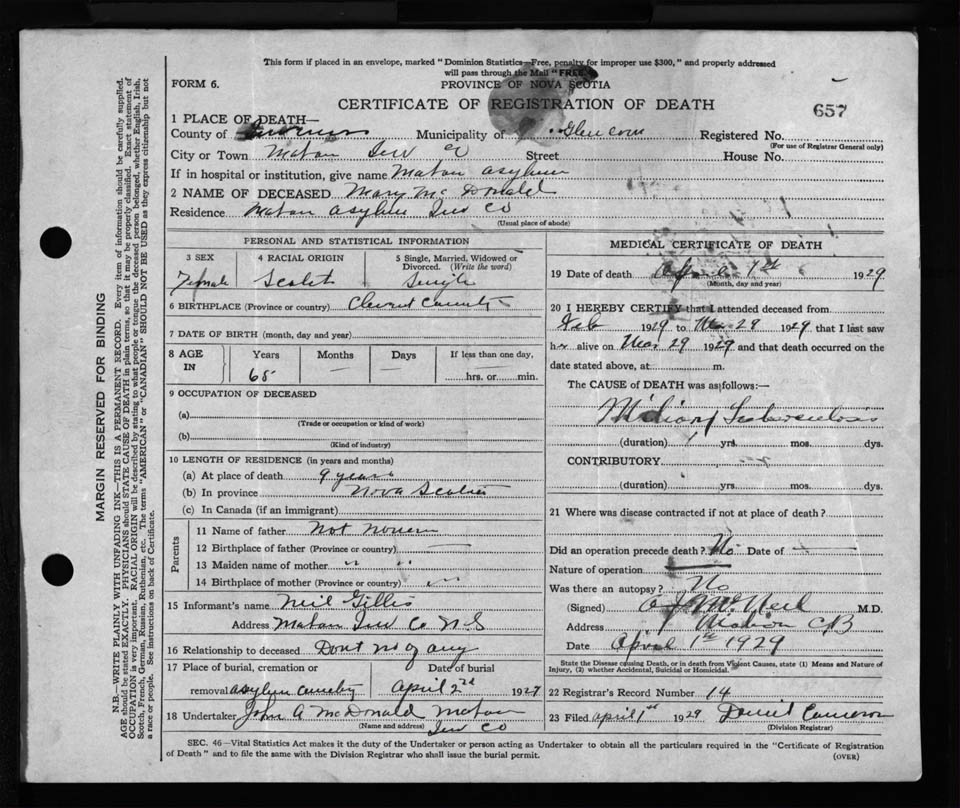 This form if placed in an envelope, marked "Dominion Statistics—Free, penalty for improper use $300," and properly addressed
will pass through the Mail "FREE."
FORM 6.
PROVINCE OF NOVA SCOTIA
CERTIFICATE OF REGISTRATION OF DEATH
657
1 PLACE OF DEATH—
County of Inverness Municipality of Registered No.
(For use of Registrar General only)
City or Town Mabou Inv Co Street House No.
If in hospital or institution, give name Mabou Asylum
2 NAME OF DECEASED Mary McDonald
Residence Mabou Asylum Inv Co
(Usual place of abode)
PERSONAL AND STATISTICAL INFORMATION
3 SEX 4 RACIAL ORIGIN 5 Single, Married, Widowed or
Divorced. (Write the word)
Female Scotch Single
6 BIRTHPLACE (Province or country)
7 DATE OF BIRTH (month, day and year)
8 AGE IN Years Months Days If less than one day,
65 — — hrs. or min.
9 OCCUPATION OF DECEASED
(a)
(Trade or occupation or kind of work)
(b)
(Kind of industry)
10 LENGTH OF RESIDENCE (in years and months)
(a) At place of death 9 years
(b) In province Nova Scotia
(c) In Canada (if an immigrant)
Parents
11 Name of father Not
12 Birthplace of father (Province or country) —
13 Maiden name of mother " "
14 Birthplace of mother (Province or country)
15 Informant's name Neil Gillis
Address Mabou Inv Co N.S
16 Relationship to deceased Dont no of any
17 Place of burial, cremation or Date of burial
removal Asylum Cemetry April 2nd 1929
18 Undertaker John A McDonald Mabou
(Name and address) Inv Co
MEDICAL CERTIFICATE OF DEATH
19 Date of death April 1st 1929
(Month, day and year)
20 I HEREBY CERTIFY that I attended deceased from
Feb 1929 to Mar 29 1929, that I last saw
her alive on Mar 29 1929 and that death occurred on the
date stated above, at m.
The CAUSE of DEATH was as follows:—
Miliary Tuberculosis
(duration) 1 yrs. mos. dys.
CONTRIBUTORY
(duration) yrs. mos. dys.
21 Where was disease contracted if not at place of death?
Did an operation precede death? No Date of —
Nature of operation
Was there an autopsy? No
(Signed) McNeil M.D.
Address Mabou CB
Date April 1st 1929
State the Disease causing Death, or in death from Violent Causes, state (1) Means and Nature of
Injury, (2) whether Accidental, Suicidal or Homicidal.
22 Registrar's Record Number 14
23 Filed April 1st 1929 Daniel Cameron
(Division Registrar)
SEC. 46—Vital Statistics Act makes it the duty of the Undertaker or person acting as Undertaker to obtain all the particulars required in the "Certificate of Registration
of Death" and to file the same with the Division Registrar who shall issue the burial permit.
(OVER)
MARGIN RESERVED FOR BINDING
N.B.—WRITE PLAINLY WITH UNFADING INK—THIS IS A PERMANENT RECORD. Every item of information should be carefully supplied.
AGE should be stated EXACTLY. PHYSICIANS should STATE CAUSE OF DEATH in plain terms, so that it may be properly classified. Exact statement of
OCCUPATION is very important. RACIAL ORIGIN will be described by stating to what people or tongue the deceased person belonged, whether English, Irish,
Scotch, French, German, Russian, Ruthenian, etc. The terms "AMERICAN" or "CANADIAN" SHOULD NOT BE USED as they express citizenship but not
a race or people. See instructions on back of Certificate.